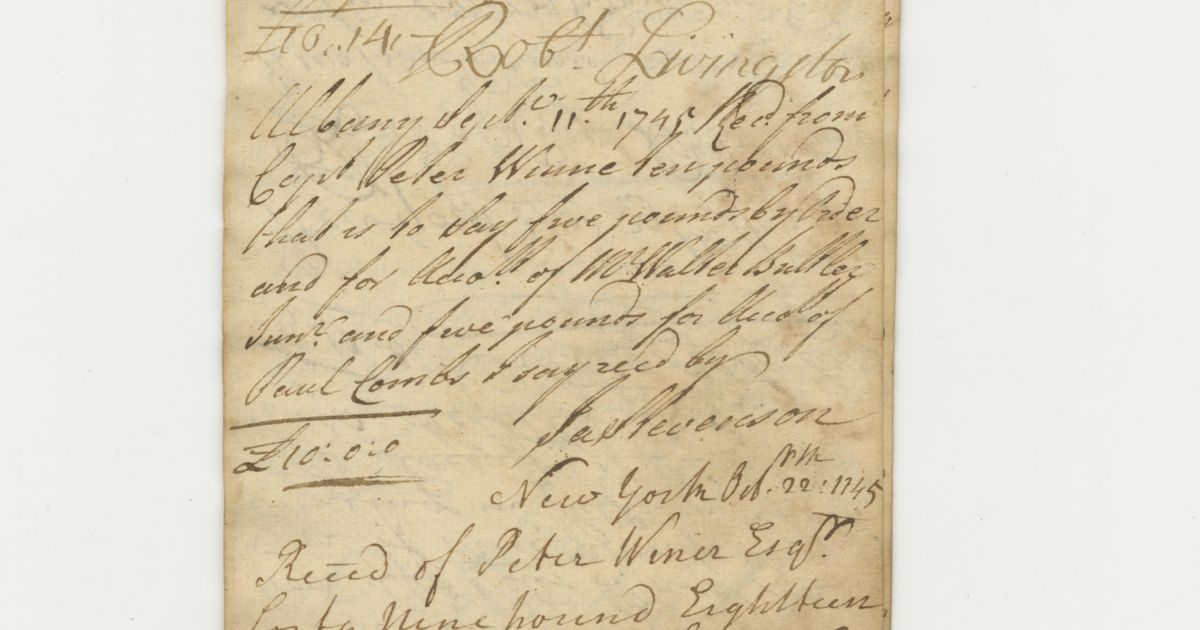 £10..14..
Robt. Livingston
Albany Septr. 11th. 1745 Recd. from
Capt Peter Winne ten pounds
that is to say five pounds by Order
and for Accott. of Mr Walter Buttler
Junr. and five pounds for Accott of
Paul Combs I say recd by
£10:0:0
Ja Stevenson
New York Octr. 22: 1745
Receed of Peter Winer Esqr.
forty Nine pound Eighteen